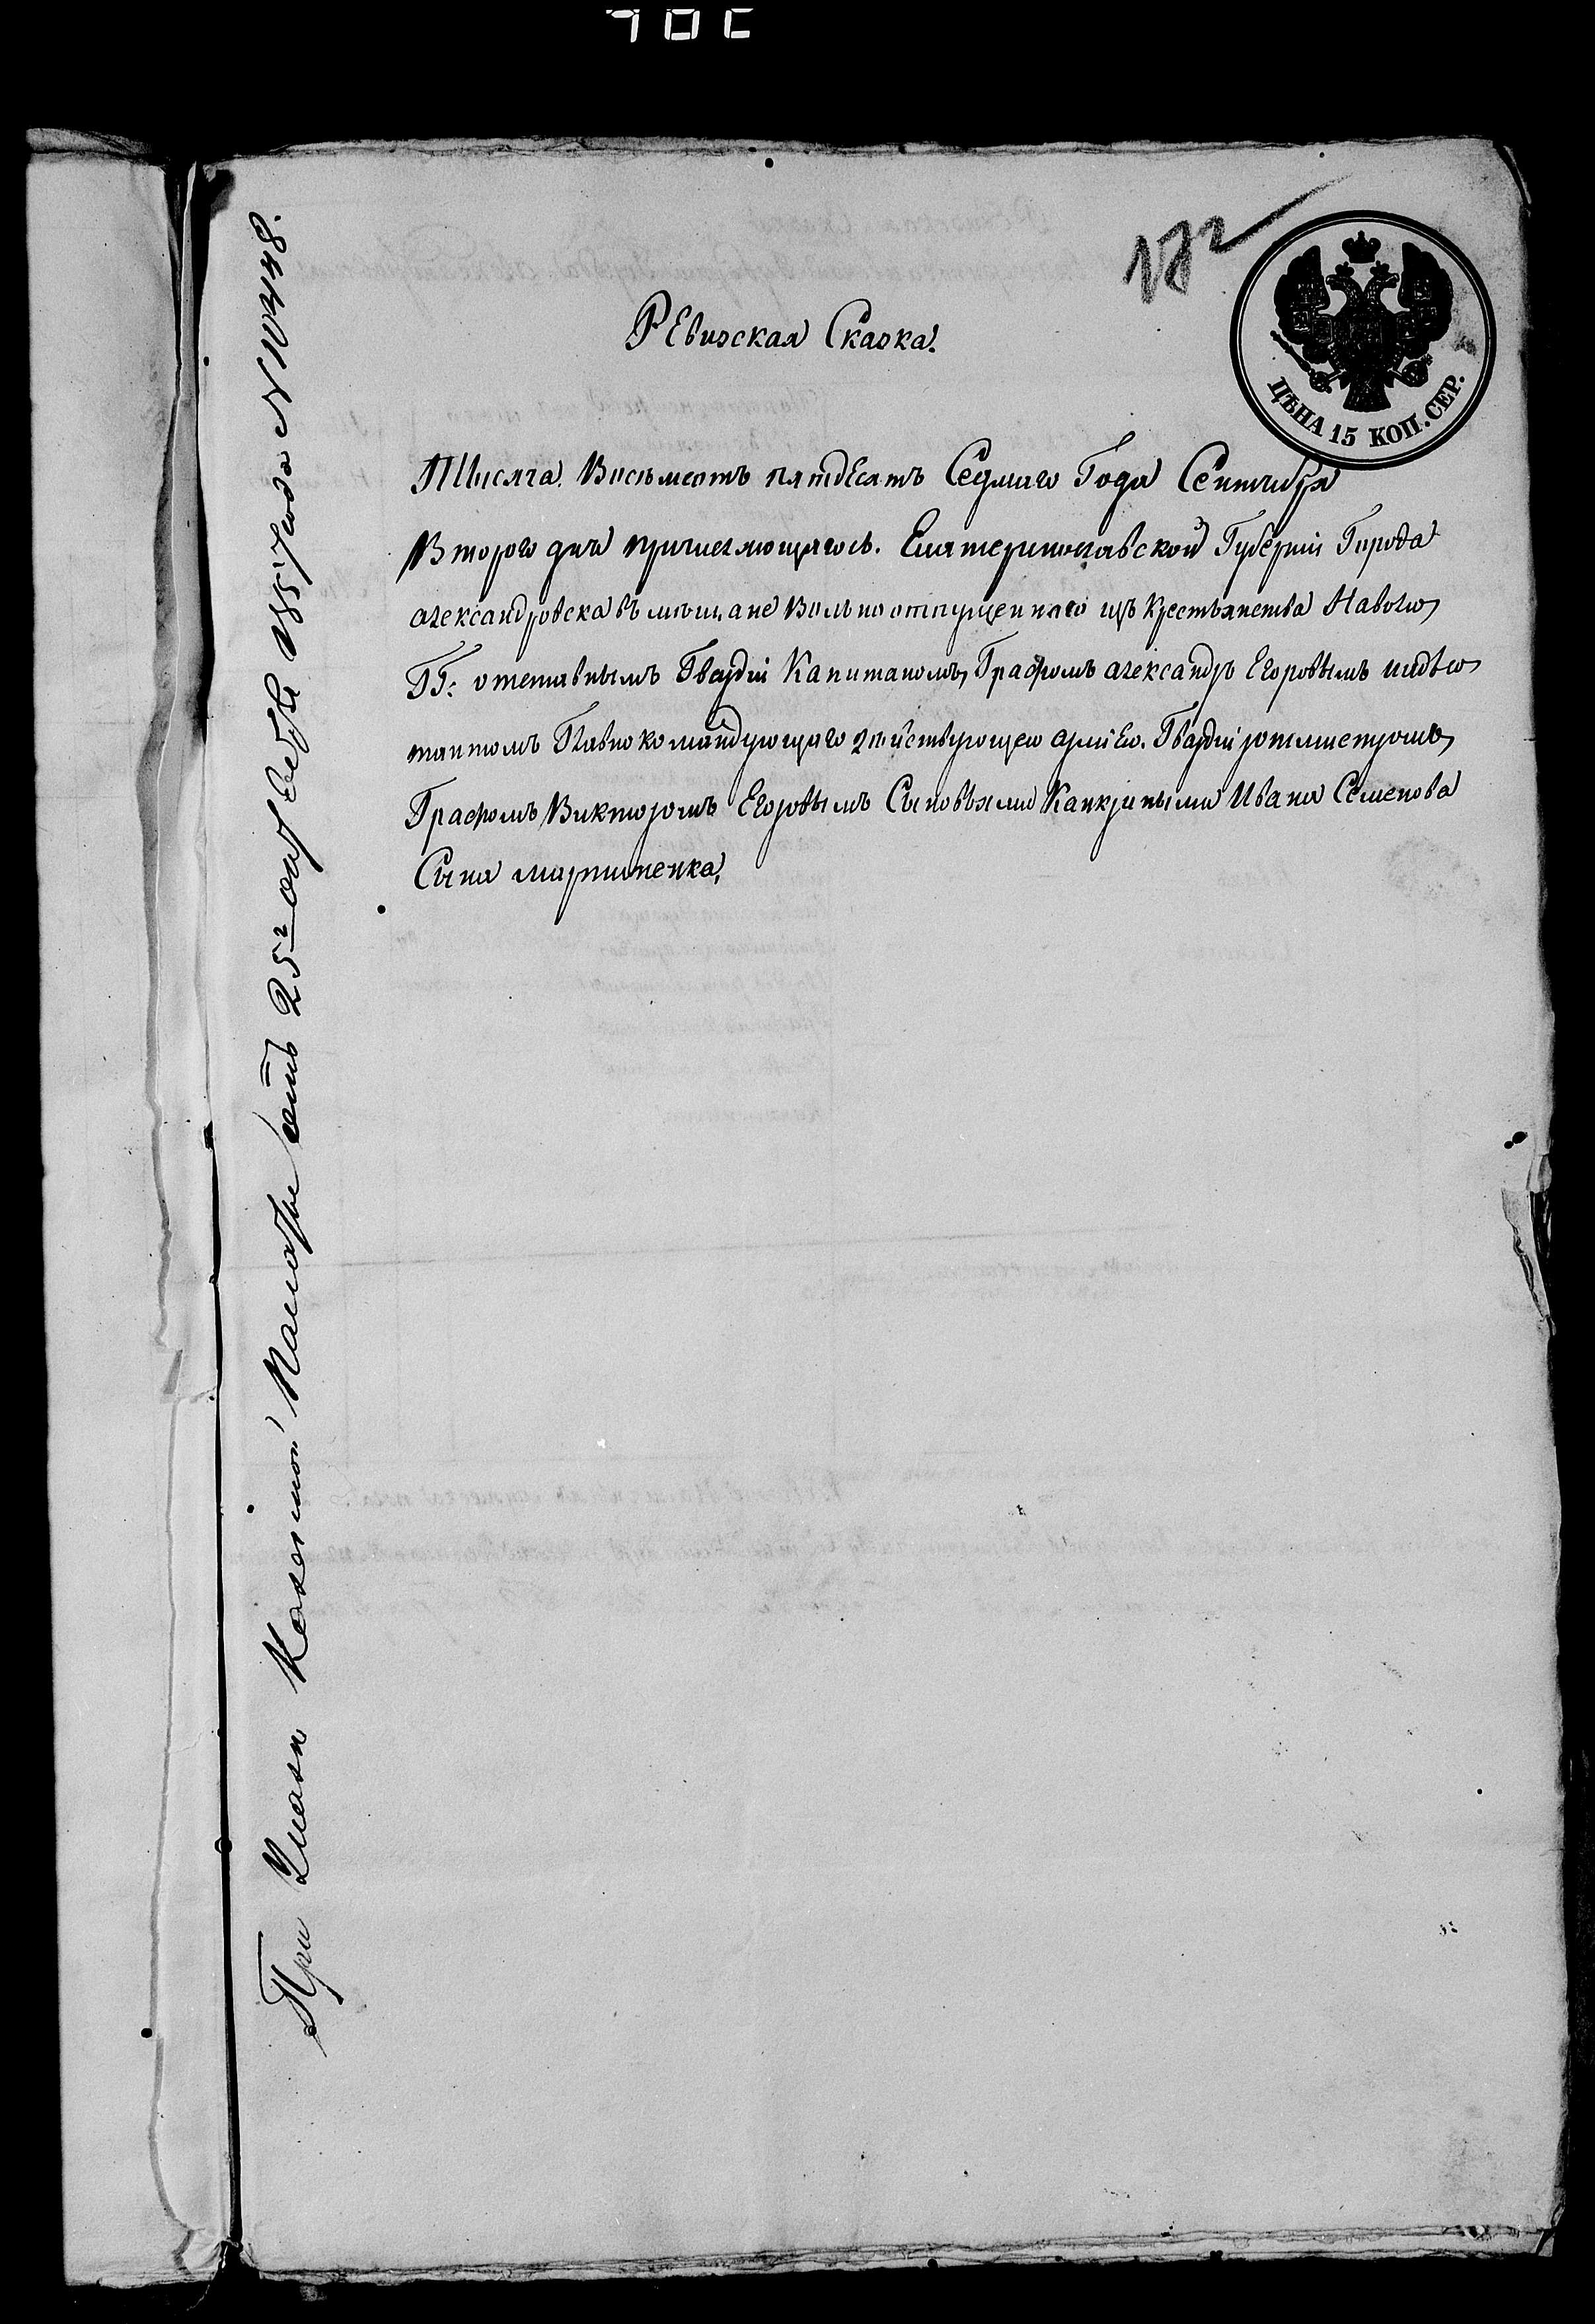 172
ЦѢНА 15 КОП. СЕР.
Ревизская Сказка.
Тысяча Восьмсотъ пятдесятъ Седмаго Года Сентября
Второго дня причисляющагось. Екатеринославской Губерніи Города
александровска въ мещане Вольно отпущеннаго изъ Крестьянства На волю
ГГ: отставнымъ Гвардіи Капитаномъ, Графомъ александр Егоровымъ и адъю
тантомъ Главно командующаго 2й действующею арміею. Гвардіи ротмистромъ,
Графомъ Викторомъ Егоровымъ Сыновьями Канкриными Ивана Семенова
Сына мартиненка,
При Указе Казенной Палаты отъ 25 октября 1857 года N 10448.